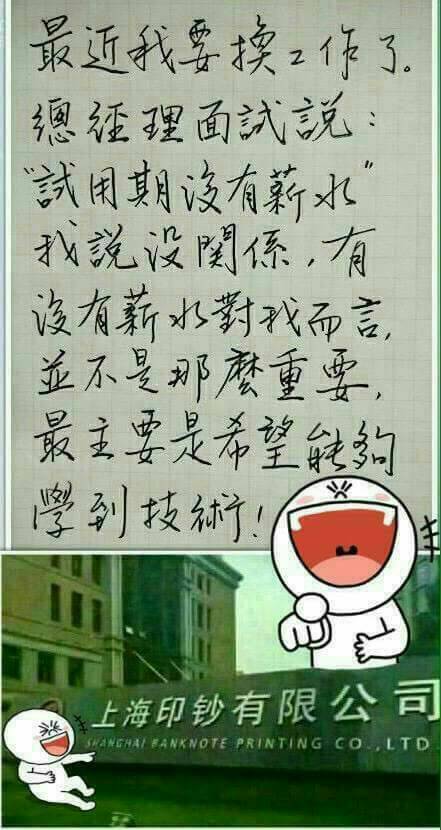 最近我要換工作了。
總經理面試說：
"試用期沒有薪水"
我說沒關係，有
沒有薪水對我而言，
並不是那麼重要，
最主要是希望能夠
學到技術！
上海印钞有限公司
SHANGHAI BANKNOTE PRINTING CO.,LTD